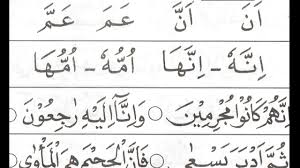 اَنَ اَنَّ عَمَ عَمَّ
اِنَّهٗ - اِنَّهَا اُمُّهٗ - اُمُّهَا
اِنَّهُمْ كَانُوْا مُجْرِمِيْنَ ○ وَاِنَّاۤ اِلَيْهِ رٰجِعُوْنَ ○
ثُمَّ اَدْبَرَ يَسْعٰى ○ فَاِنَّ الْجَحِيْمَ هِيَ الْمَاْوٰى